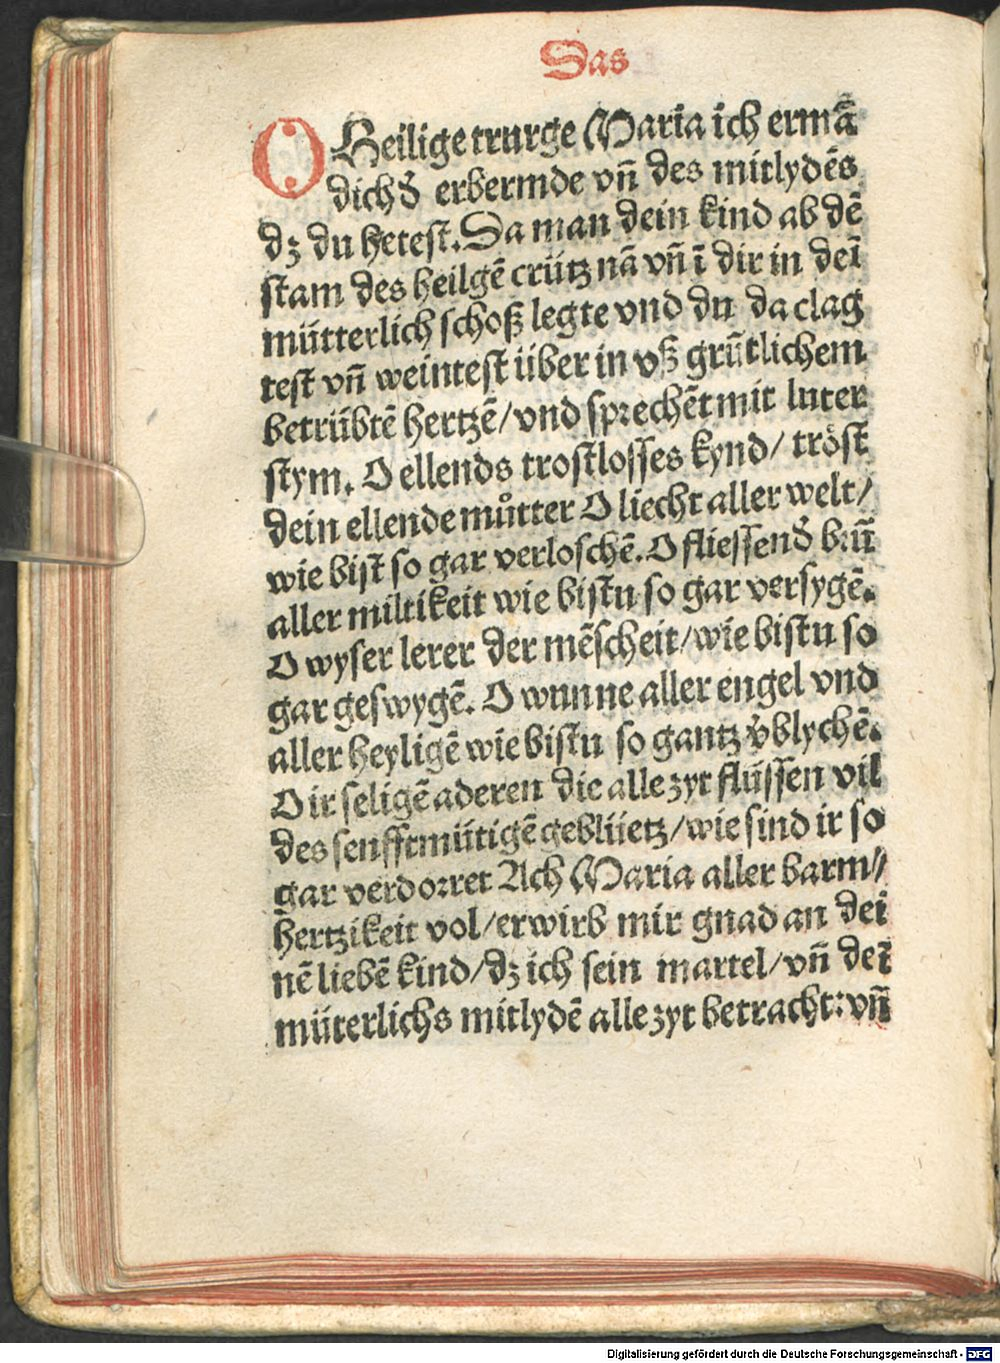 Das
O Heilige trurge Maria ich ermā
dich d̄ erbermde vn̄ des mitlydēs
dz du hetest. Da man dein kind ab dē
stam des heilgē crütz nā vn̄ ī dir in deī
mütterlich schoß legte vnd du da clag
test vn̄ weintest über in vß grūtlichem
betrübtē hertzē/vnd sprechēt mit luter
stym. O ellends trostlosses kynd/ tröst
dein ellende muͦtter O liecht aller welt/
wie bist so gar verloschē. O fliessend̄ brūn̄
aller miltikeit wie bistu so gar versygē.
O wyser lerer der mēscheit/wie bistu so
gar geswygē. O wunne aller engel vnd
aller heyligē wie bistu so gantz v̄blychē.
O ir seligē aderen die alle zyt flüssen vil
des senfftmütigē geblüetz/wie sind ir so
gar verdorret Ach Maria aller barm//
hertzikeit vol/erwirb mir gnad an dei
nē liebē kind/dz ich sein martel/vn̄ deī
müterlichs mitlydē alle zyt betracht: vn̄
Digitalisierung gefördert durch die Deutsche Forschungsgemeinschaft - DFG